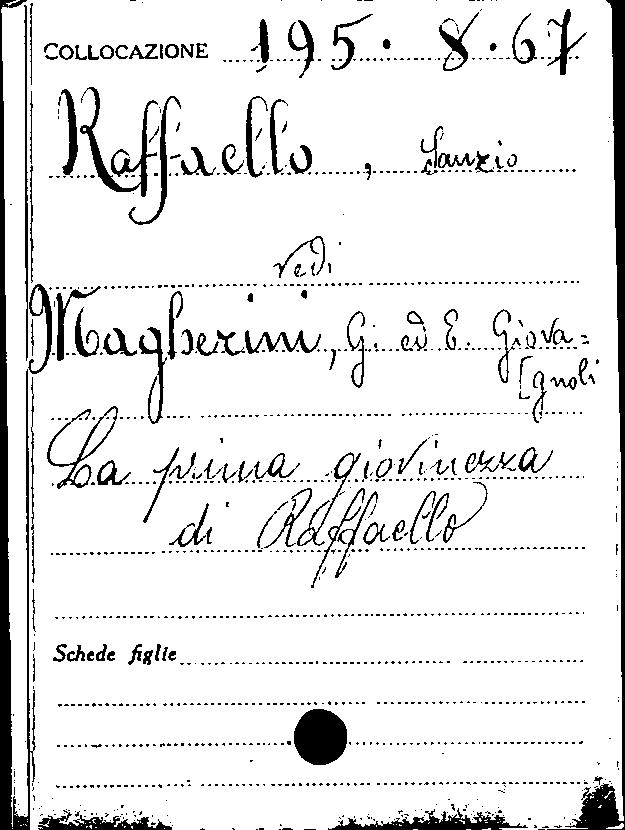 COLLOCAZIONE 195. 8. 67
Raffaello, Sanzio
vedi
Magherini, G. ed E. Giova=
[gnoli
La prima giovinezza
di Raffaello
Schede figlie